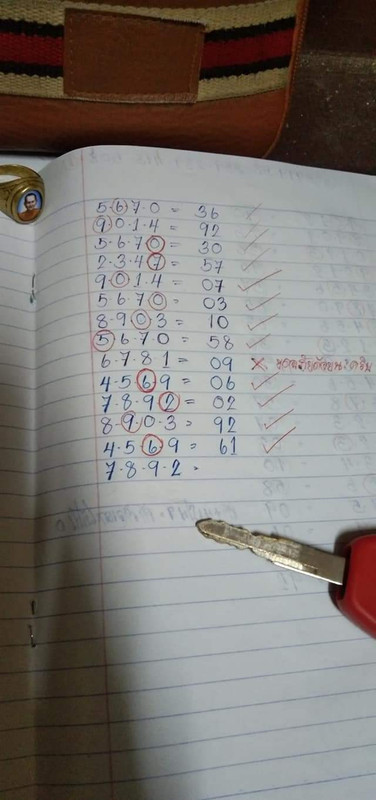 5·6·7·0 = 36 ✓
9·0·1·4 = 92 ✓
5·6·7·0 = 30 ✓
2·3·4·7 = 57 ✓
9·0·1·4 = 07 ✓
5·6·7·0 = 03 ✓
8·9·0·3 = 10 ✓
5·6·7·0 = 58 ✓
6·7·8·1 = 09 ✗
4·5·6·9 = 06 ✓
7·8·9·2 = 02 ✓
8·9·0·3 = 92 ✓
4·5·6·9 = 61 ✓
7·8·9·2 =